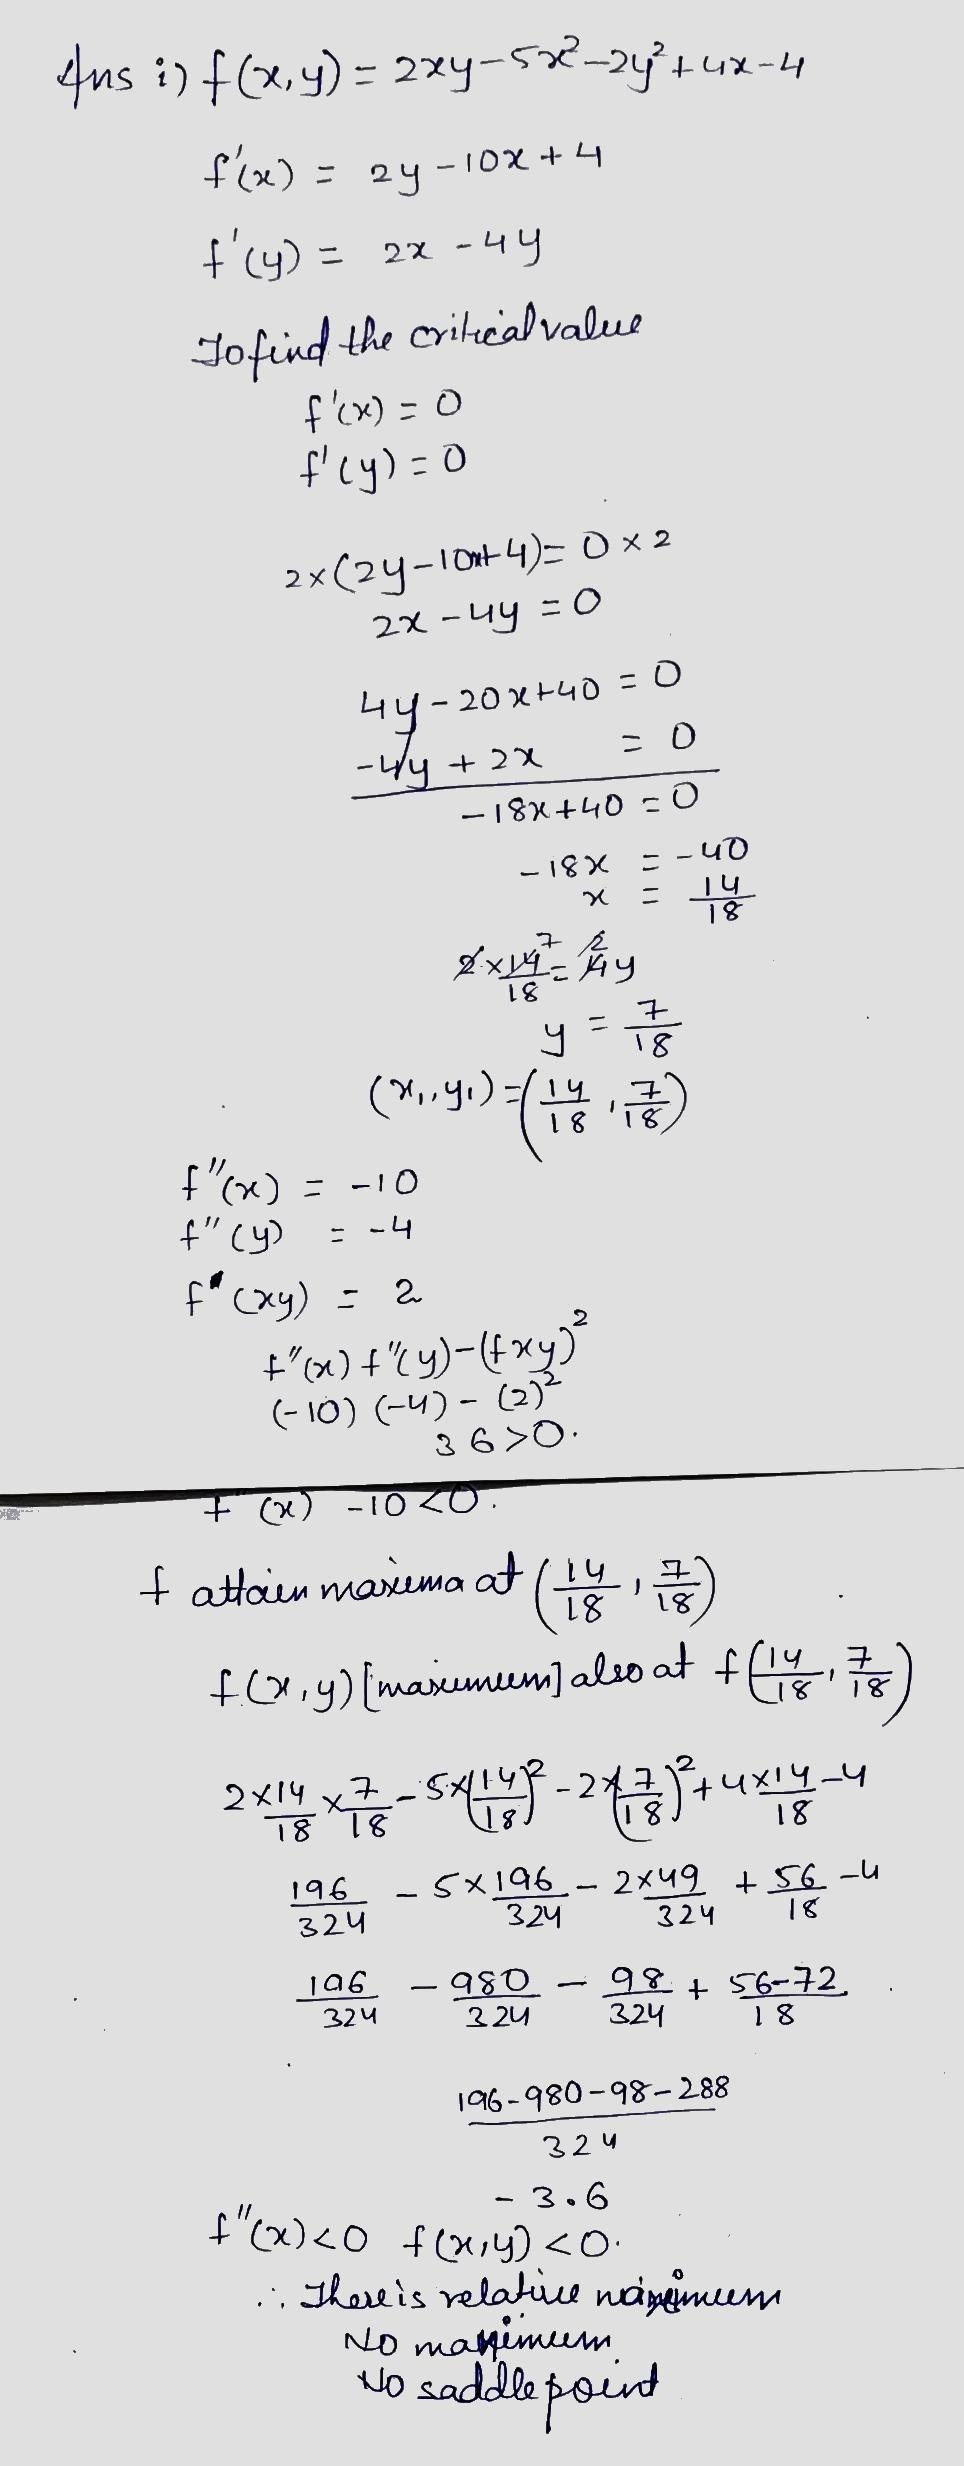 Ans i) f(x,y) = 2xy-5x²-2y²+4x-4
f'(x) = 2y-10x+4
f'(y) = 2x-4y
To find the critical value
f'(x) = 0
f'(y) = 0
2×(2y-10x+4) = 0×2
2x-4y = 0
4y-20x+40 = 0
-4y+2x = 0
-18x+40 = 0
-18x = -40
x = 14/18
2×14/18 = 4y 7 2
y = 7/18
(x₁,y₁) = (14/18, 7/18)
f''(x) = -10
f''(y) = -4
f''(xy) = 2
f''(x) f''(y)-(fxy)²
(-10) (-4) - (2)²
36>0.
f (x) -10<0.
f attain maxima at (14/18, 7/18)
f(x,y) [maximum] also at f(14/18, 7/18)
2×14/18 × 7/18 - 5×(14/18)² - 2×(7/18)² + 4×14/18 - 4
196/324 - 5×196/324 - 2×49/324 + 56/18 - 4
196/324 - 980/324 - 98/324 + 56-72/18
196-980-98-288
324
- 3.6
f''(x)<0 f(x,y)<0.
∴ There is relative
No
No saddle point